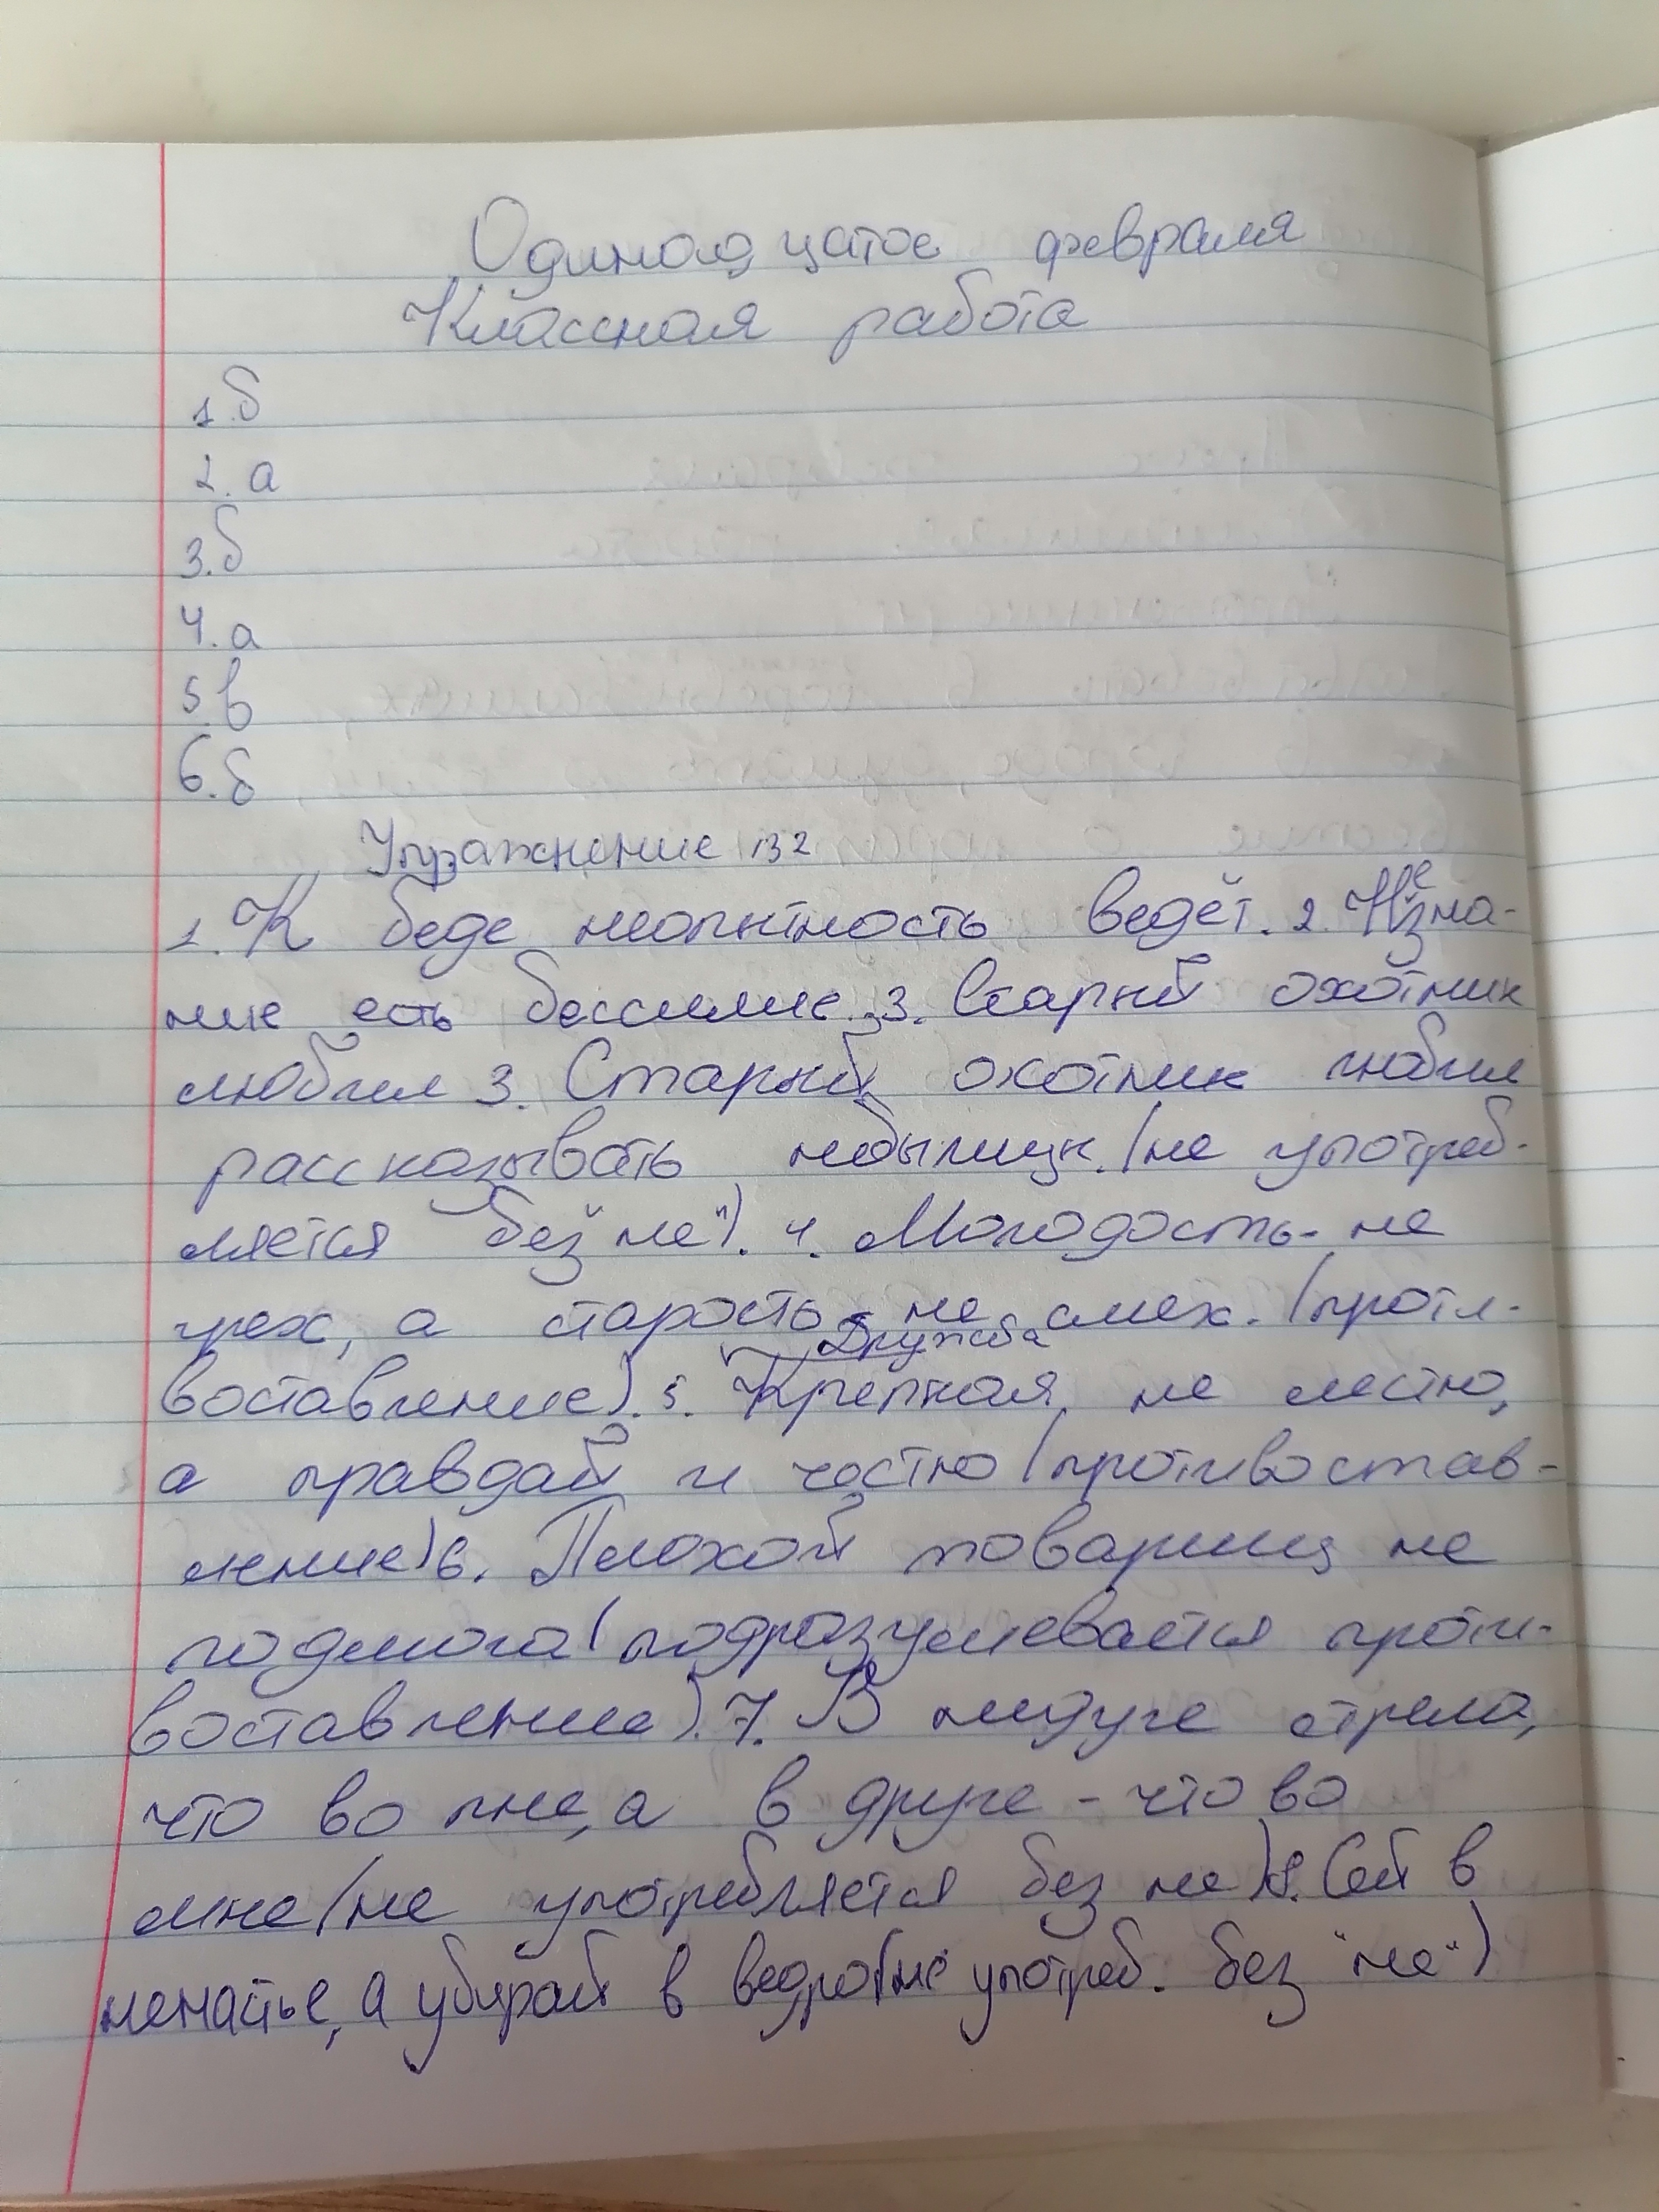 Одиннадцатое февраля
Классная работа
1. б
2. а
3. б
4. а
5. в
6. б
Упражнение 132
1. К беде неопытность ведёт. 2. Незна-
ние есть бессилие. 3. Старый охотник
любил 3. Старый охотник любил
рассказывать небылицы. (не употреб-
ляется без "не"). 4. Молодость - не
грех, а старость не смех. (проти-
воставление). 5. Крепкая дружба не лестью,
а правдай и честью (противостав-
ление) 6. Плохой товарищ не
подмога (подразумевается проти-
воставление). 7. В недруге стрела,
что во пне, а в друге - что во
мне (не употребляется без не) 8. Сей в
ненастье, а убирай в ведро (не употреб. без "не")